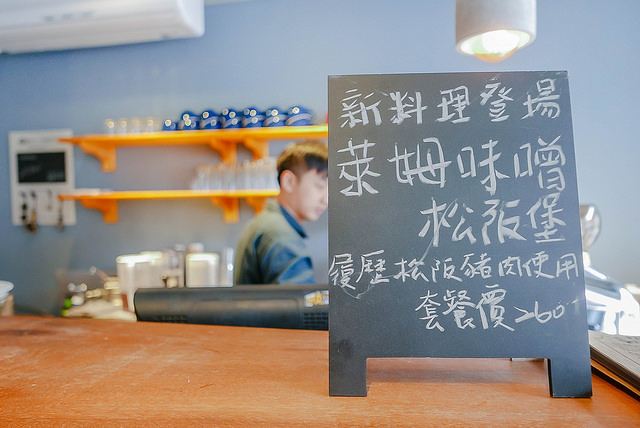 新料理登場
萊姆味噌
松阪堡
履歷松阪豬肉使用
套餐價260